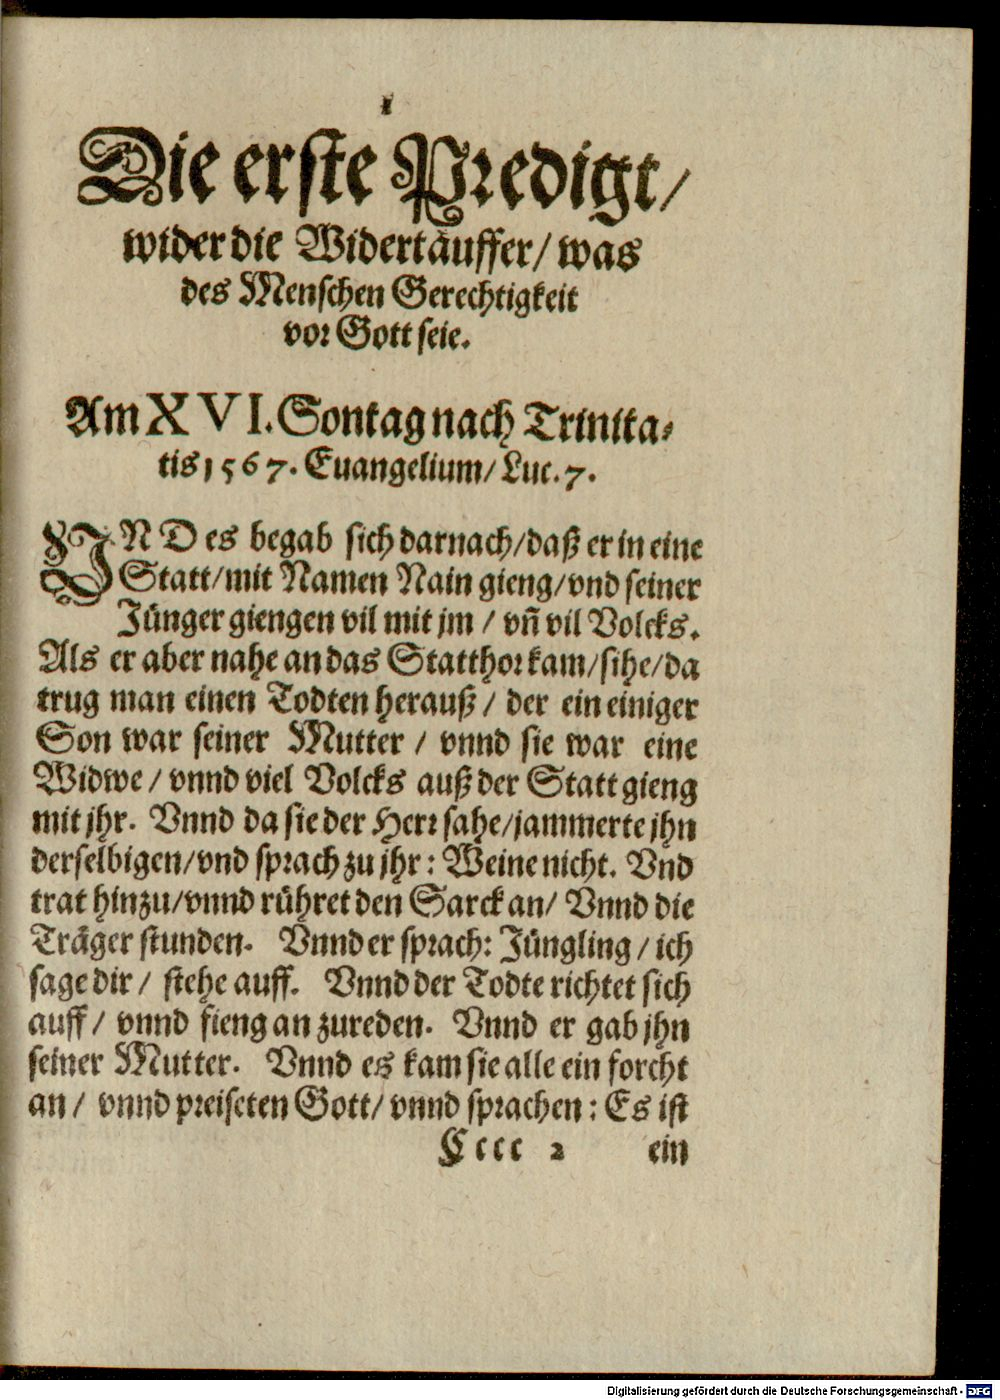 1
Die erste Predigt/
wider die Widertäuffer/ was
des Menschen Gerechtigkeit
vor Gott seie.
Am XVI. Sontag nach Trinita⸗
tis 1567. Euangelium/ Luc. 7.
VND es begab sich darnach/ daß er in eine
Statt/ mit Namen Nain gieng/ vnd seiner
Jünger giengen vil mit jm / vñ vil Volcks.
Als er aber nahe an das Statthor kam/ sihe/ da
trug man einen Todten herauß / der ein einiger
Son war seiner Mutter / vnnd sie war eine
Widwe / vnnd viel Volcks auß der Statt gieng
mit jhr. Vnnd da sie der Herr sahe/ jammerte jhn
derselbigen/ vnd sprach zu jhr: Weine nicht. Vnd
trat hinzu/ vnnd rühret den Sarck an/ Vnnd die
Träger stunden. Vnnd er sprach: Jüngling / ich
sage dir / stehe auff. Vnnd der Todte richtet sich
auff / vnnd fieng an zureden. Vnnd er gab jhn
seiner Mutter. Vnnd es kam sie alle ein forcht
an / vnnd preiseten Gott/ vnnd sprachen: Es ist
Cccc 2 ein
Digitalisierung gefördert durch die Deutsche Forschungsgemeinschaft - DFG